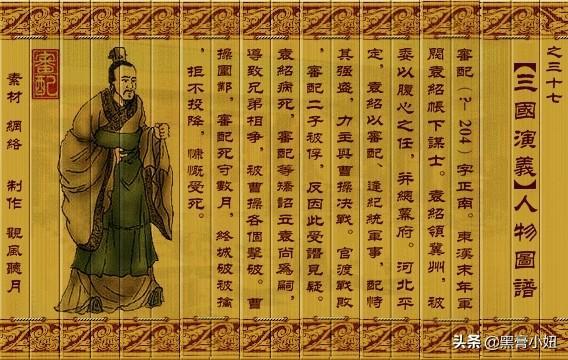 之三十七
【三國演義】人物圖譜
審配(?—204)字正南。東漢末年軍
閥袁紹帳下謀士。袁紹領冀州,被
委以腹心之任,并總幕府。河北平
定,袁紹以審配、逢紀統軍事,配恃
其强盛,力主與曹操决戰。官渡戰敗
,審配二子被俘,反因此受譖見疑。
袁紹病死,審配等矯詔立袁尚爲嗣,
導致兄弟相争,被曹操各個擊破。曹
操圍鄴,審配死守數月,終城破被擒
,拒不投降,慷慨受死。
審配
素材 網絡 制作 觀風聽月
头条 @黑骨小妞